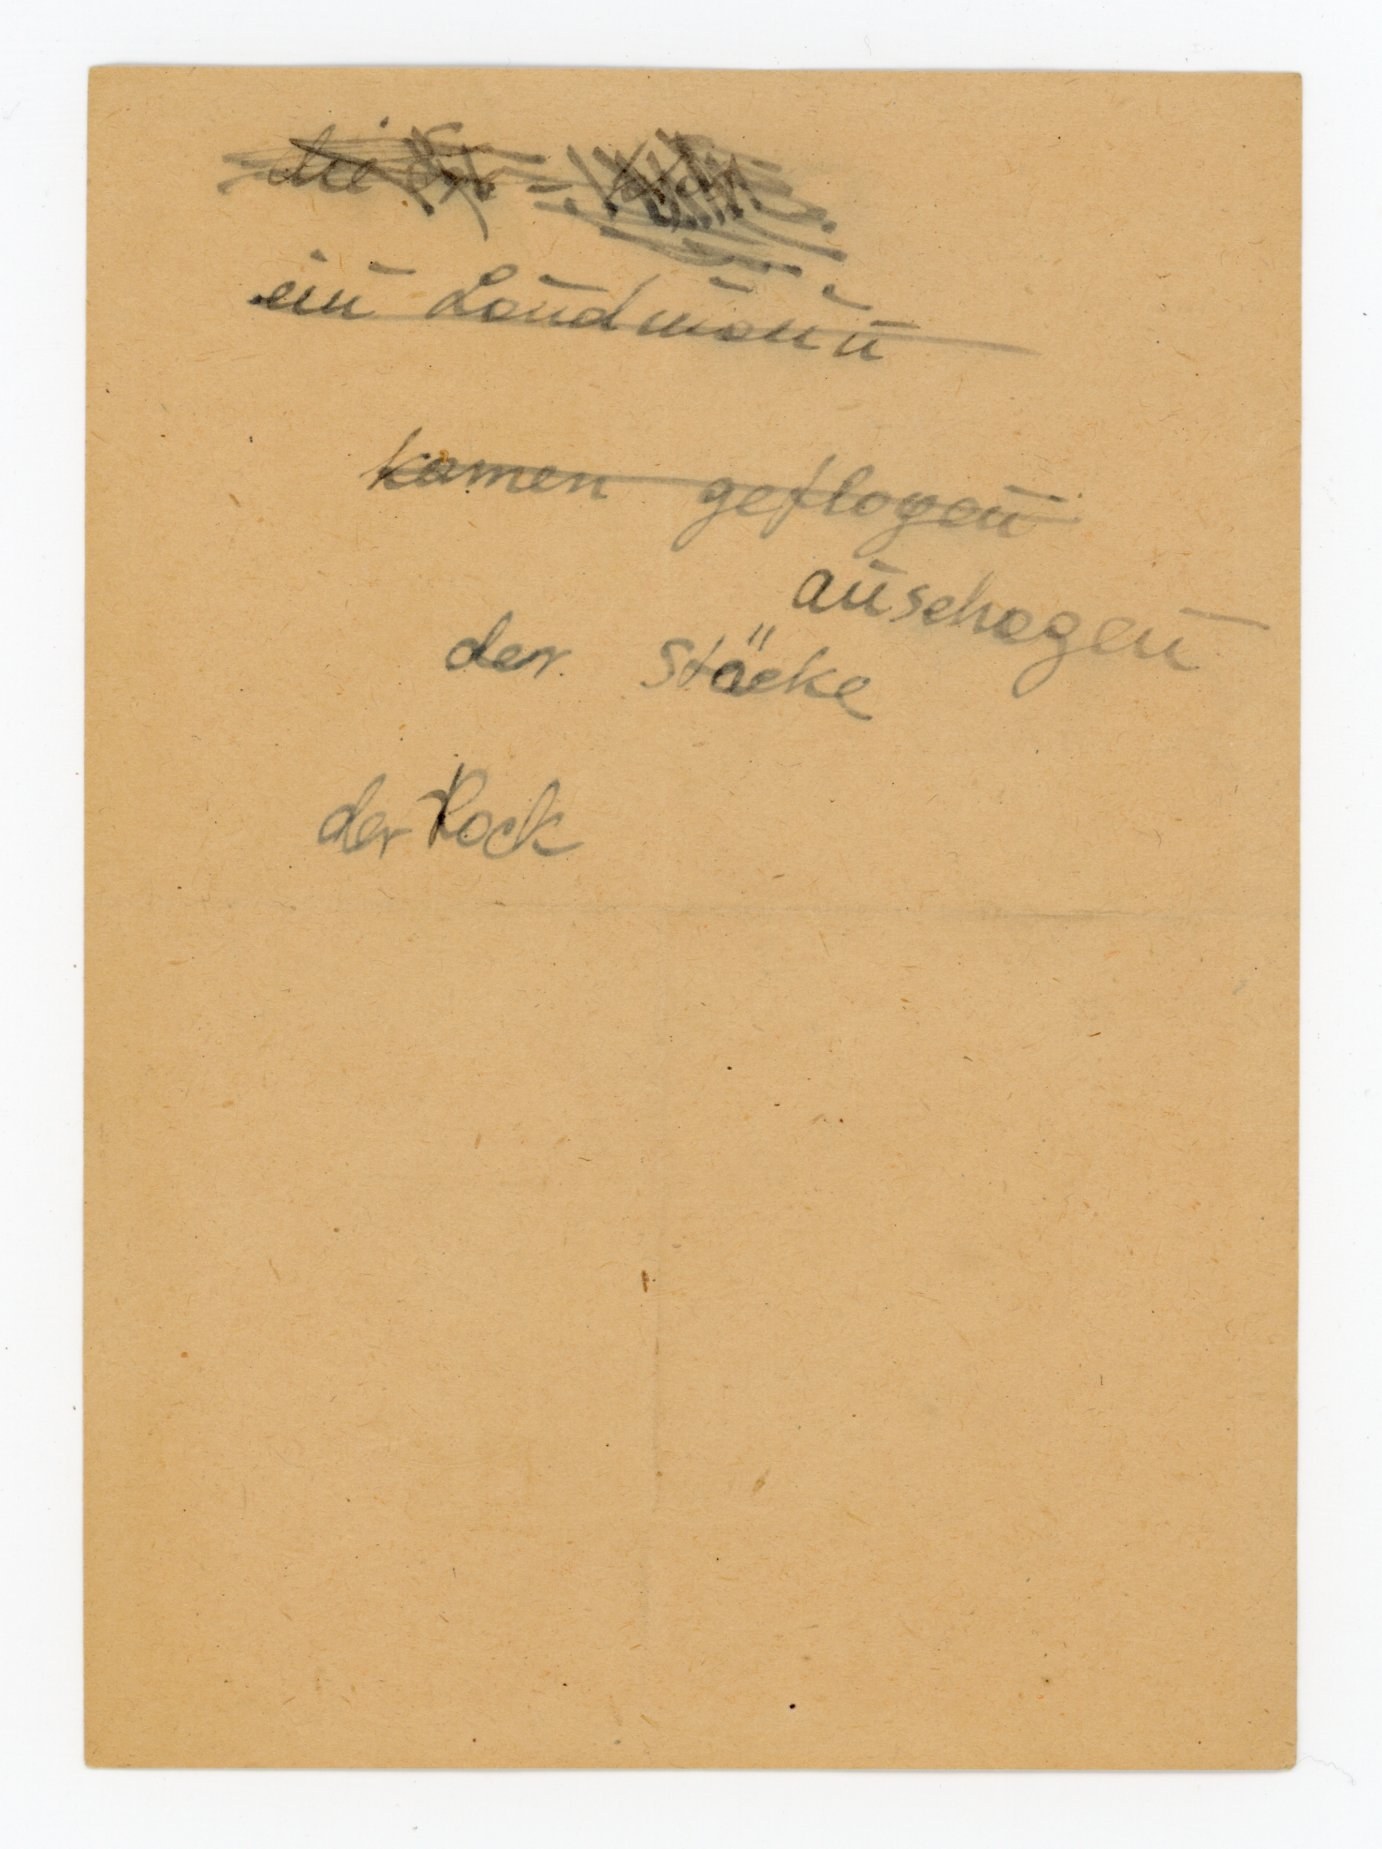 die
ein Landmann
kamen geflogen
anschagen
der Stäcke
der Rock